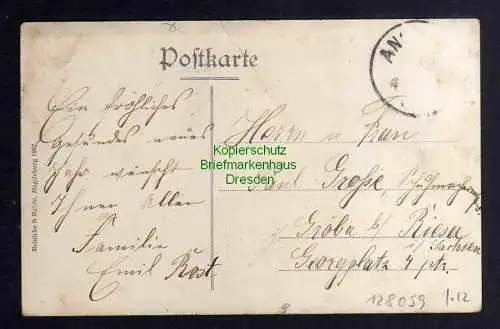 Postkarte
AN.
Ein fröhliches
Gesundes neues
Jahr wünscht
Ihnen Allen
Familie
Emil Rost
Herrn u Frau
Paul Große, Schuhmachermstr.
Gröba b/ Riesa
i/ Sachsen
Georgplatz 4 ptr.
Reinicke & Rubin, Magdeburg 1907
Kopierschutz
Briefmarkenhaus
Dresden
128059 1.12